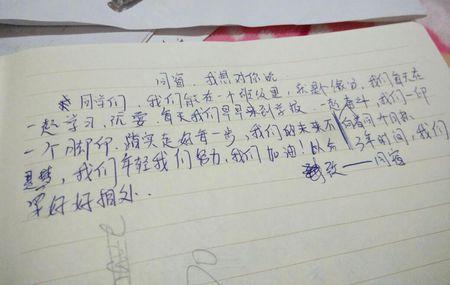 同窗，我想对你说
同学们，我们能在一个班级里，永是个缘分，我们每天在
一起学习，玩耍。每天我们早早来到学校，一起奋斗，我们一印
一个脚印，踏实走好每一步，我们的未来不
，我们年轻我们努力，我们加油！以后 3年时间，我们
好好相处. 致——同窗